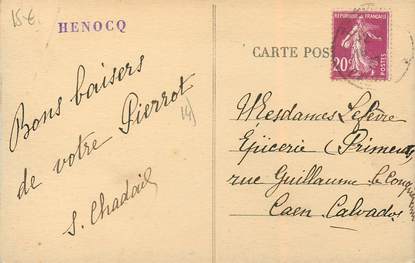 15€
HENOCQ
CARTE POS
REPUBLIQUE FRANÇAISE
20c
POSTES
Bons baisers
de votre Pierrot
14)
S. Chadail
Mesdames Lefèvre
Epicerie (Primeurs)
rue Guillaume le Conquérant
Caen Calvados